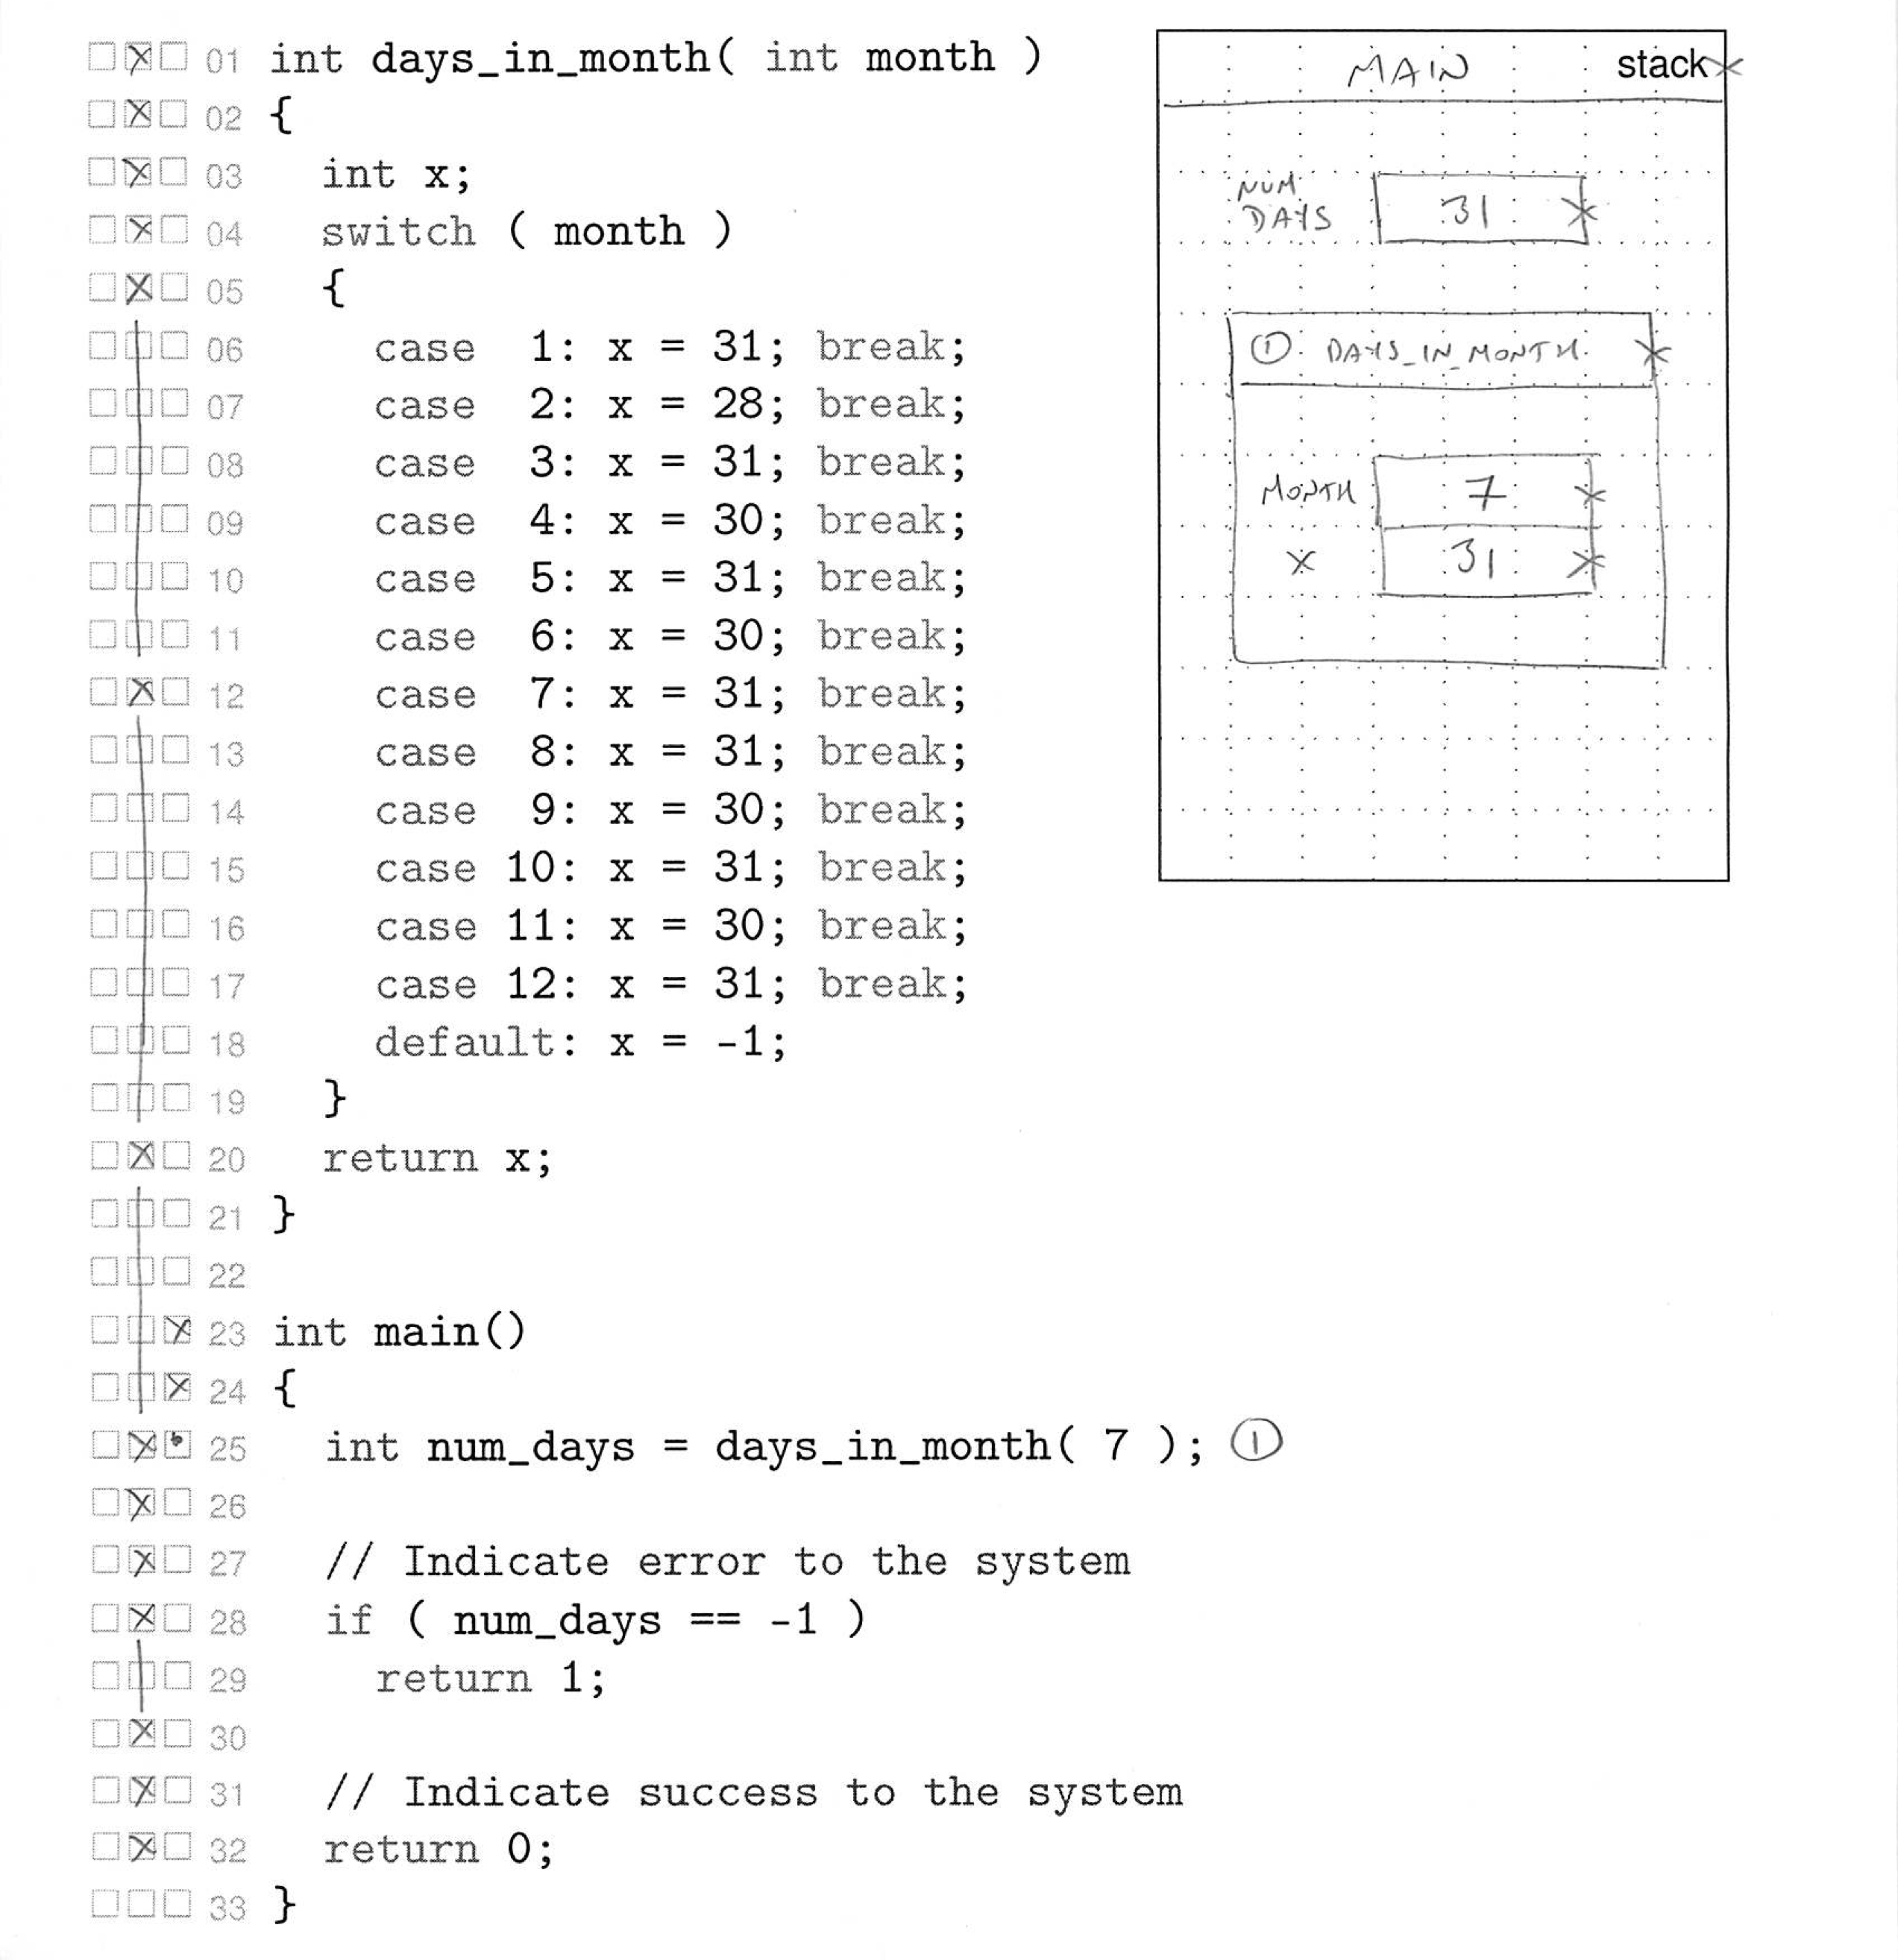 01 int days_in_month( int month )
02 {
03 int x;
04 switch ( month )
05 {
06 case 1: x = 31; break;
07 case 2: x = 28; break;
08 case 3: x = 31; break;
09 case 4: x = 30; break;
10 case 5: x = 31; break;
11 case 6: x = 30; break;
12 case 7: x = 31; break;
13 case 8: x = 31; break;
14 case 9: x = 30; break;
15 case 10: x = 31; break;
16 case 11: x = 30; break;
17 case 12: x = 31; break;
18 default: x = -1;
19 }
20 return x;
21 }
22
23 int main()
24 {
25 int num_days = days_in_month( 7 ); ①
26
27 // Indicate error to the system
28 if ( num_days == -1 )
29 return 1;
30
31 // Indicate success to the system
32 return 0;
33 }
MAIN stack
NUM
DAYS 31
① DAYS_IN_MONTH
MONTH 7
X 31